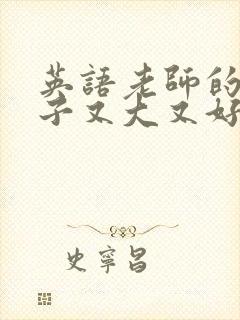 英語老師的
子又大又好
史寧昌